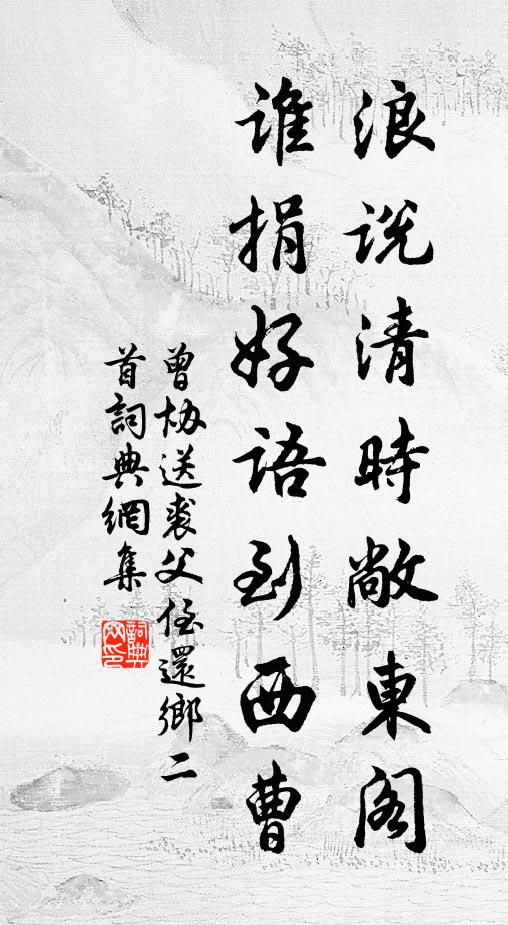 浪说清時敞東閣
谁捐好语到西曹
曾协送裘父侄還鄉二
首詞典網集
詞典
网印